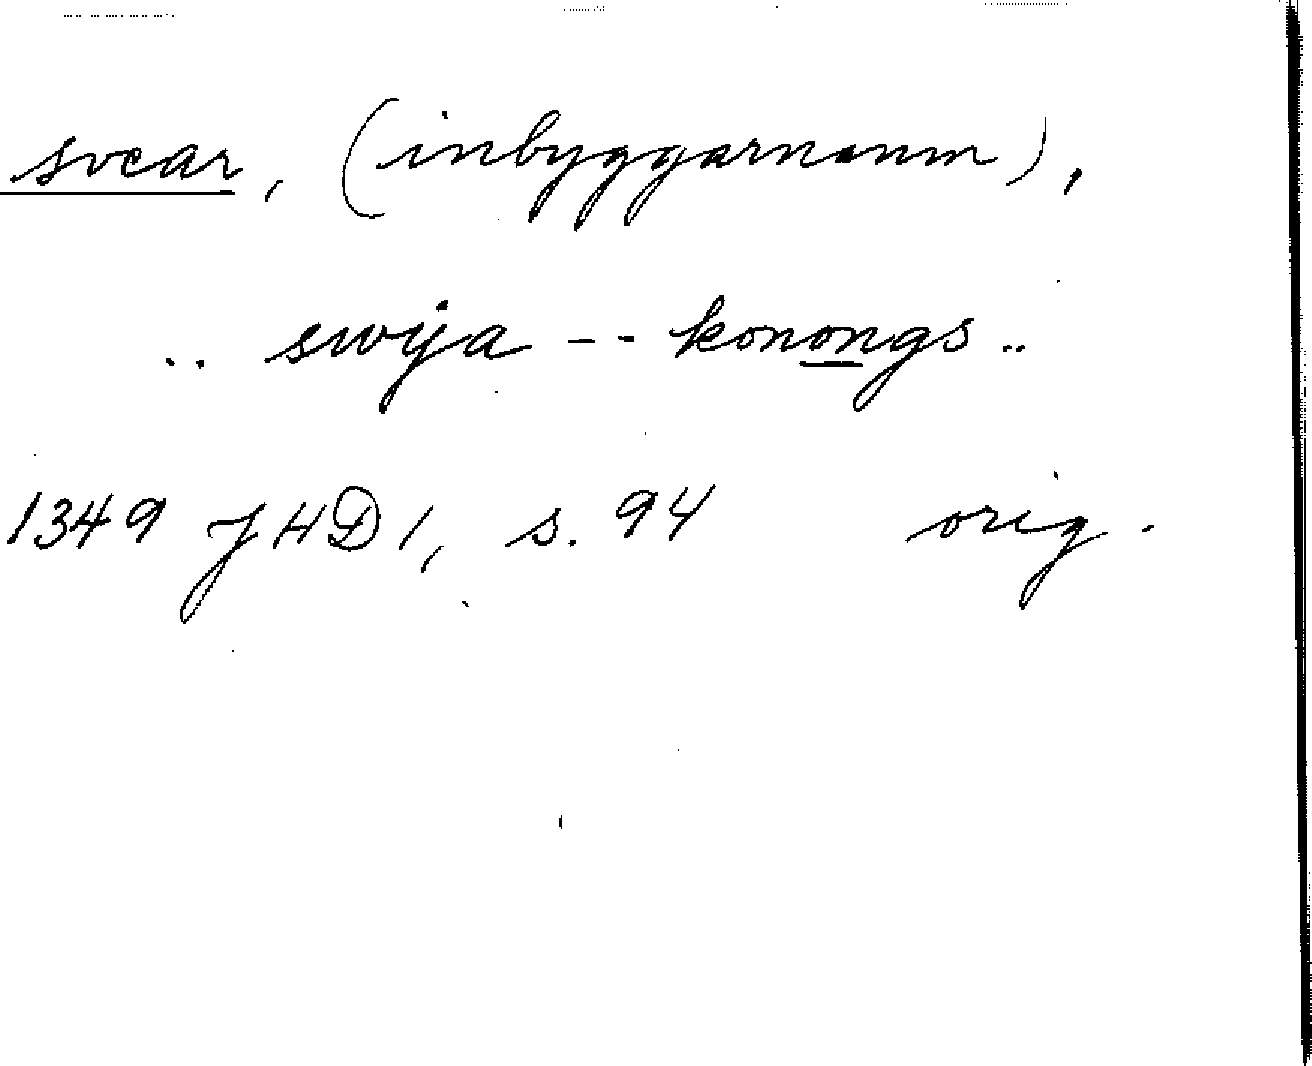 svear, (inbyggarnamn),
.. swija -- konongs ..
1349 JHD 1, s. 94 orig.